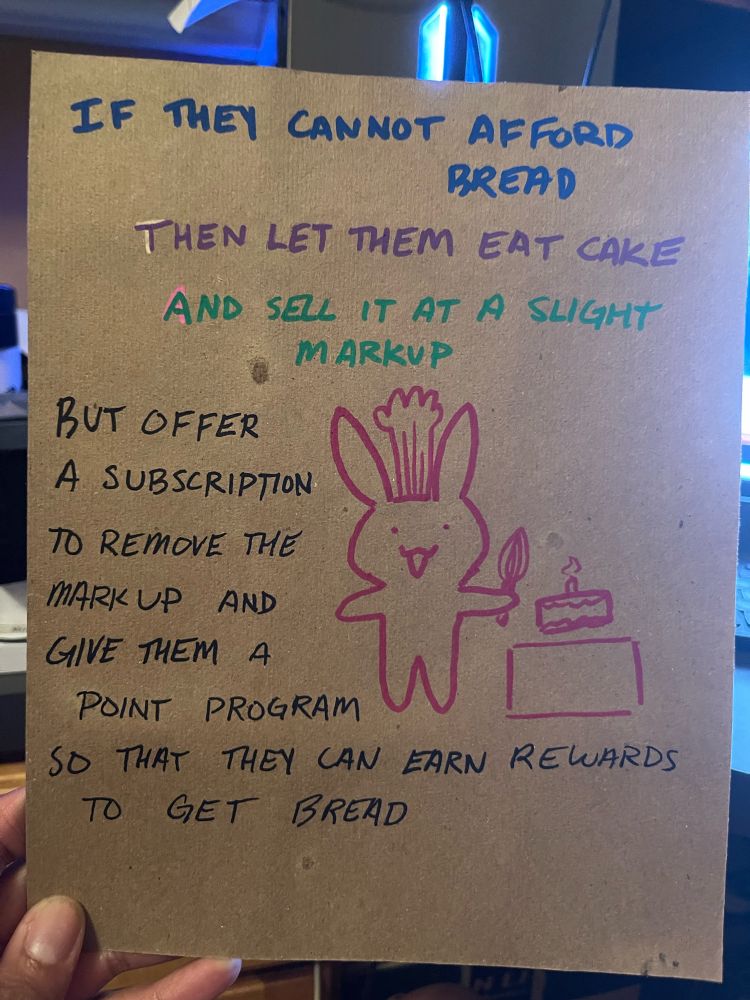 IF THEY CANNOT AFFORD
BREAD
THEN LET THEM EAT CAKE
AND SELL IT AT A SLIGHT
MARKUP
BUT OFFER
A SUBSCRIPTION
TO REMOVE THE
MARKUP AND
GIVE THEM A
POINT PROGRAM
SO THAT THEY CAN EARN REWARDS
TO GET BREAD